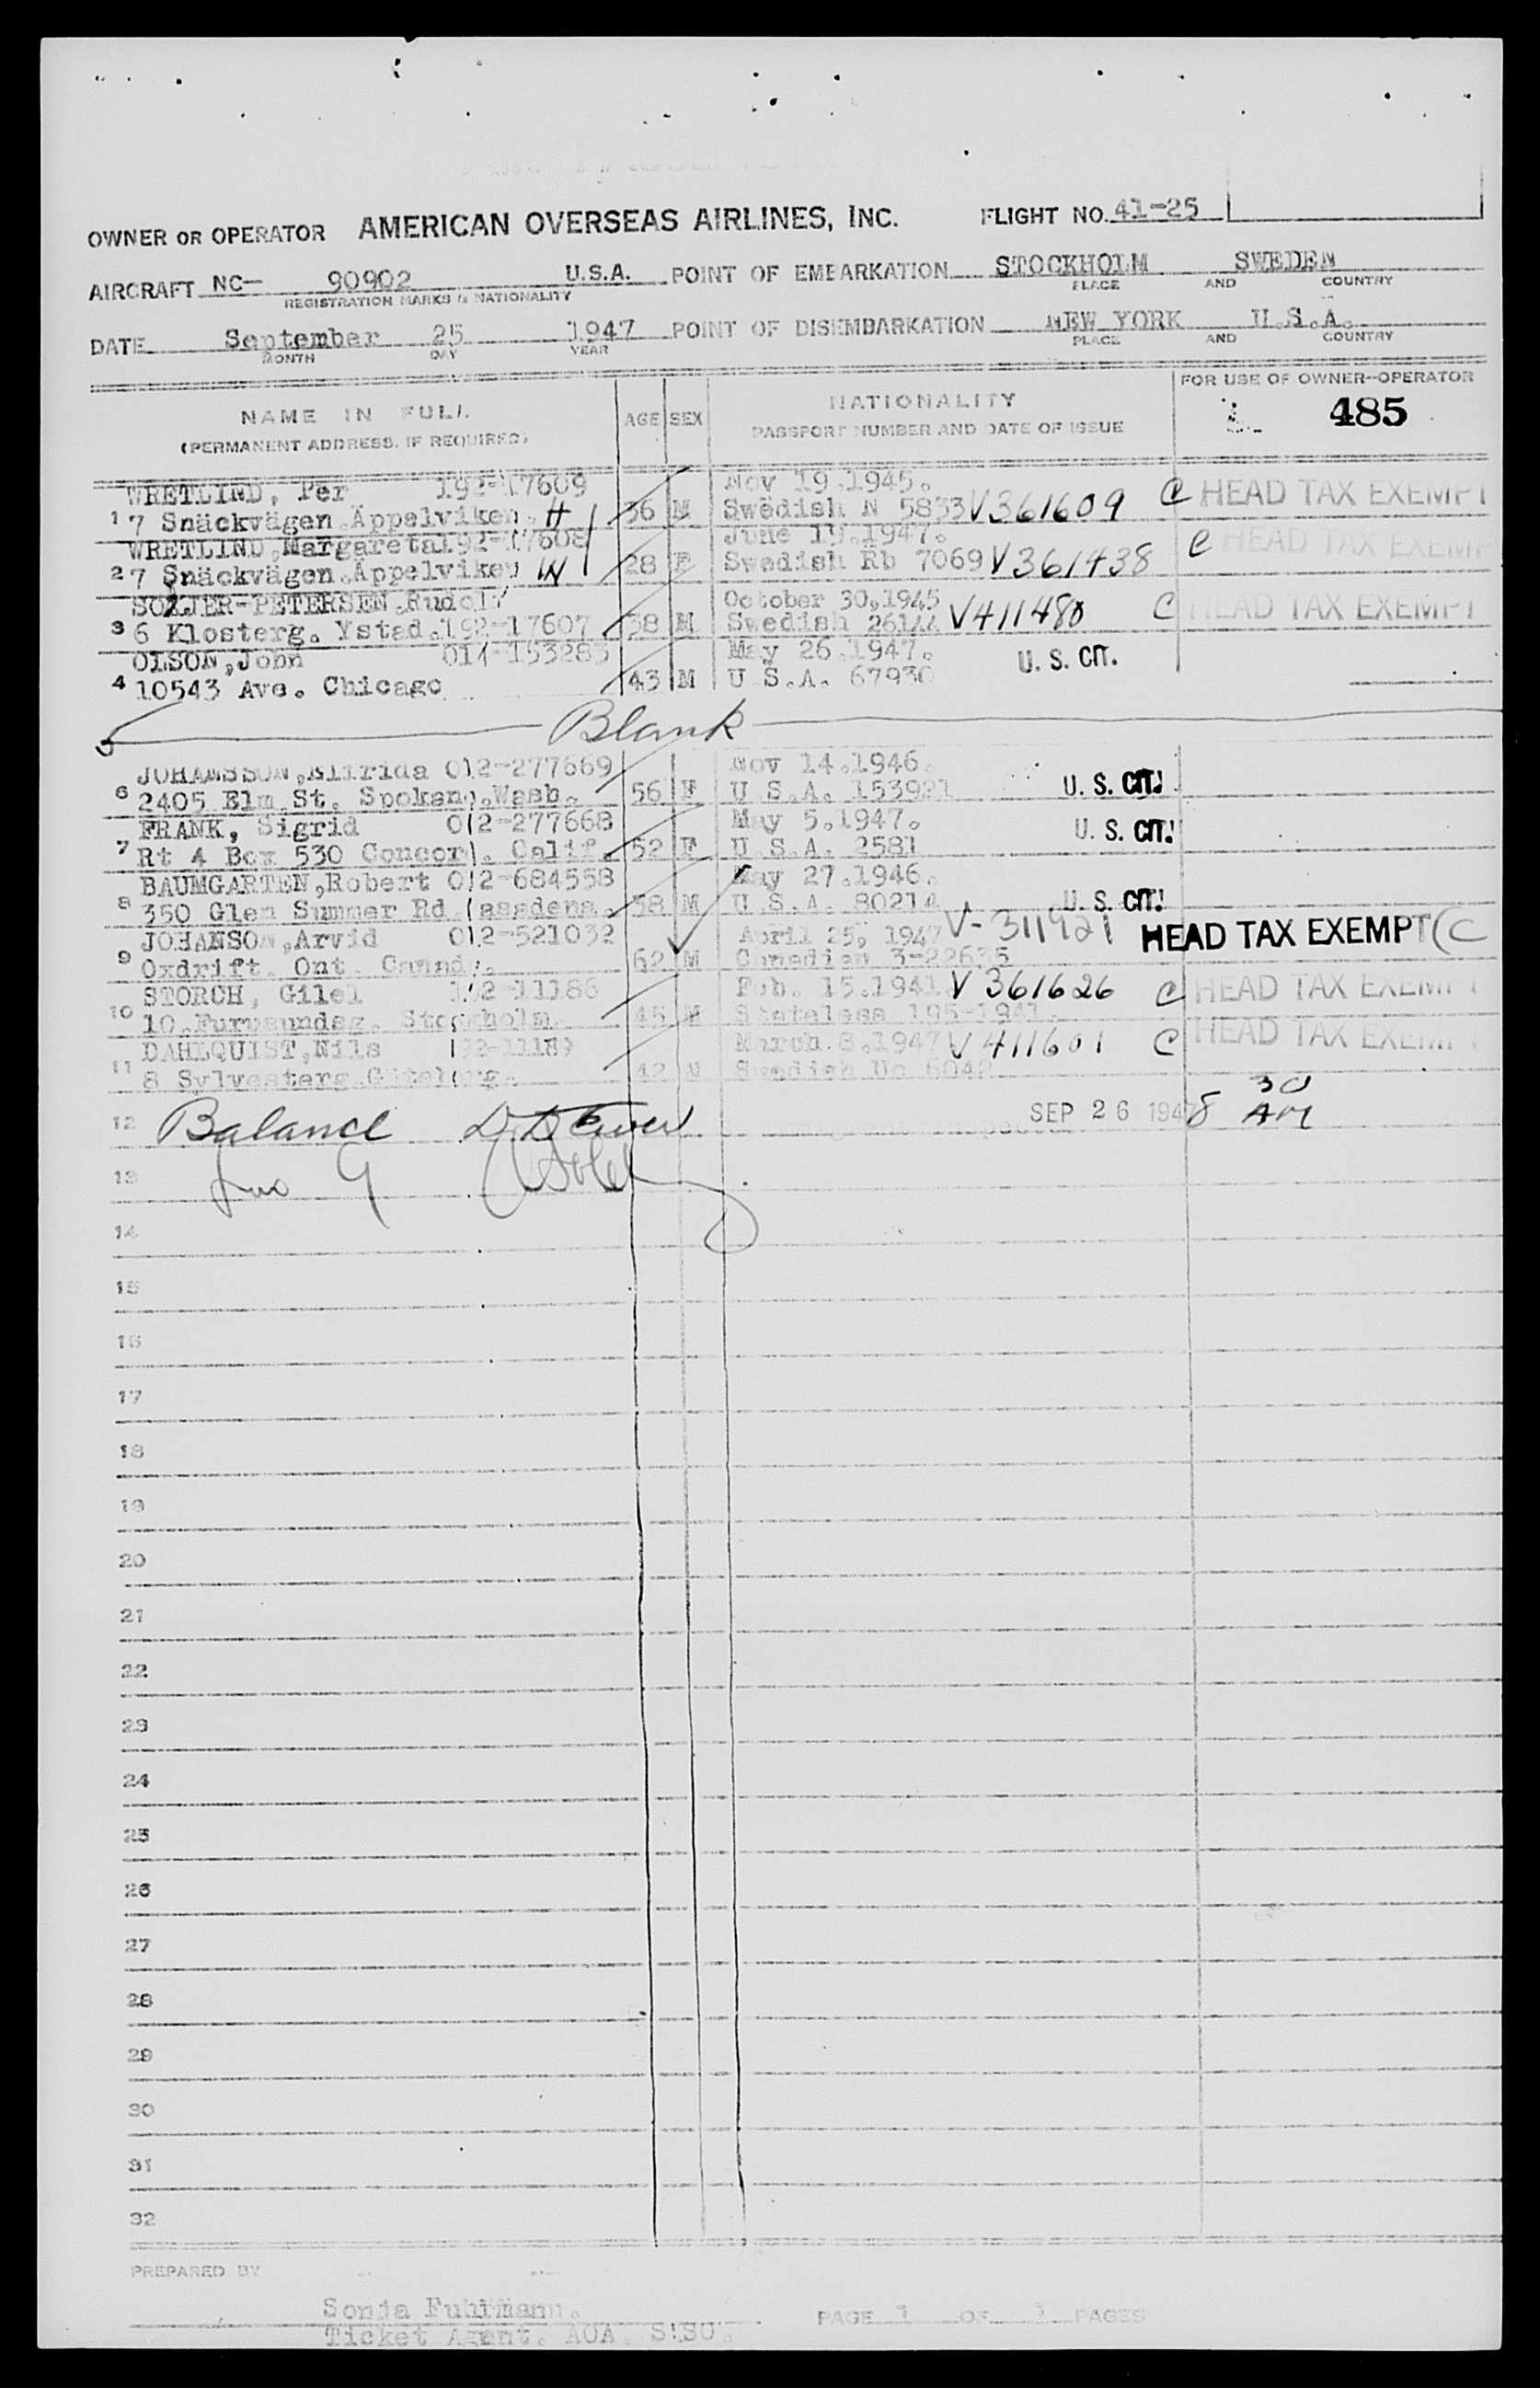 OWNER OR OPERATOR AMERICAN OVERSEAS AIRLINES, INC. FLIGHT NO. 41-25
AIRCRAFT NC- 90902 U.S.A. POINT OF EMBARKATION STOCKHOLM SWEDEN
REGISTRATION MARKS & NATIONALITY PLACE AND COUNTRY
DATE September 25 1947 POINT OF DISEMBARKATION NEW YORK U.S.A.
MONTH DAY YEAR PLACE AND COUNTRY
NAME IN FULL AGE SEX NATIONALITY FOR USE OF OWNER-OPERATOR
(PERMANENT ADDRESS, IF REQUIRED) PASSPORT NUMBER AND DATE OF ISSUE 485
WRETLIND, Per 192-17609 Nov 19.1945.
1 7 Snäckvägen.Äppelviken. H 36 M Swedish N 5833 V361609 C HEAD TAX EXEMPT
WRETLIND,Margareta192-17608 June 19.1947.
2 7 Snäckvägen.Äppelviken W 28 F Swedish Rb 7069 V361438 C HEAD TAX EXEMP
PETERSEN,Rudolf October 30,1945
3 6 Klosterg. Ystad.192-17607 38 M Swedish V411480 C HEAD TAX EXEMPT
OLSON,John 014-153283 May 26.1947.
4 10543 Ave. Chicago 43 M U S.A. 67930 U. S. CIT.
5 Blank
JOHANSSON,Elfrida 012-277669 Nov 14.1946.
6 2405 Elm.St. Spokane.Wash. 56 F U S.A. 153921 U. S. CIT.
FRANK, Sigrid 012-277668 May 5.1947.
7 Rt 4 Box 530 Concord. Calif. 52 F U.S.A. 2581 U. S. CIT.
BAUMGARTEN,Robert 012-684558 May 27.1946.
8 350 Glen Summer Rd Pasadena. 58 M U.S.A. 80214 U. S. CIT.
JOHANSON,Arvid 012-521032 April 25, 1947 V-311921 HEAD TAX EXEMPT C
9 Oxdrift. Ont. Canada. 62 M Canadian 3-22635
STORCH, Gilel 192-11186 Feb. 15.1941 V 361626 C HEAD TAX EXEMPT
10 10.Furusundsg. Stockholm. 45 M Stateless 195-1941.
DAHLQUIST,Nils 192-11189 March.8.1947 V 411601 C HEAD TAX EXEM
11 8 Sylvesterg.Göteborg. 42 M Swedish Uc 6042
12 Balance SEP 26 1947 8 30 AM
13
14
15
16
17
18
19
20
21
22
23
24
25
26
27
28
29
30
31
32
PREPARED BY
Sonja Fuhrmann. PAGE 1 OF 1 PAGES
Ticket Agent. AOA